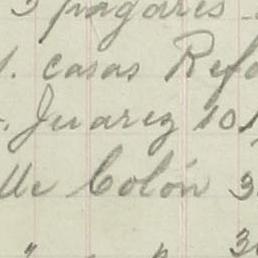 3 pagarés
1. casas Refo
Juarez 101
lle Colón 3
" 30